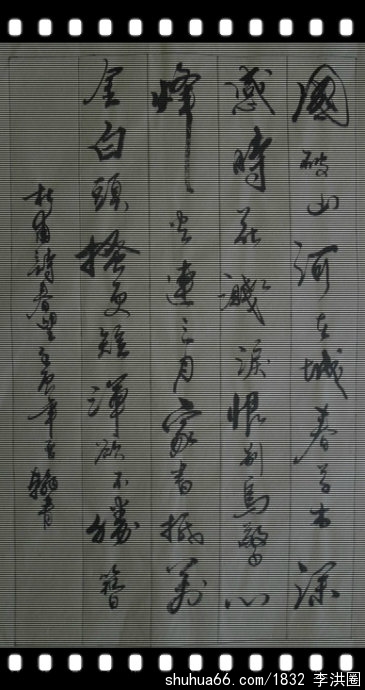 國破山河在城春草木深
感時花濺淚恨別鳥驚心
烽火連三月家書抵萬
金白頭搔更短渾欲不勝簪
杜甫詩春望壬辰年翰青
shuhua66.com/1832 李洪圈